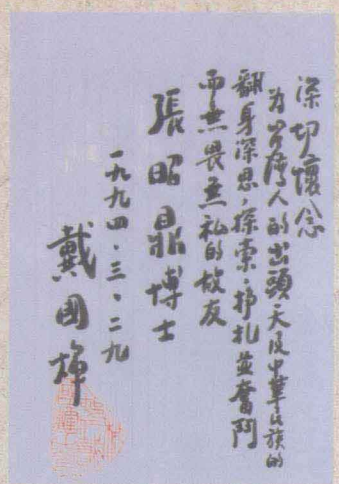 深切懷念
為台灣人的出頭天及中華民族的
翻身深思，探索，掙扎並奮鬥
而無畏無私的故友
張昭鼎博士
一九九四・三・二九
戴國煇